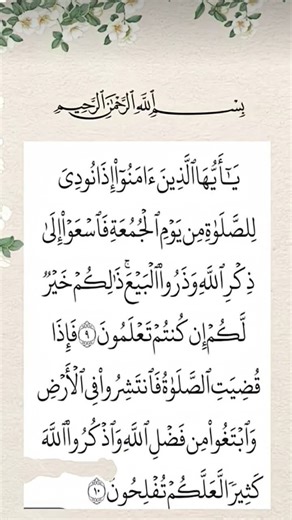 بِسْمِ ٱللَّهِ ٱلرَّحْمَٰنِ ٱلرَّحِيمِ
يَـٰٓأَيُّهَا ٱلَّذِينَ ءَامَنُوٓا۟ إِذَا نُودِىَ
لِلصَّلَوٰةِ مِن يَوْمِ ٱلْجُمُعَةِ فَٱسْعَوْا۟ إِلَىٰ
ذِكْرِ ٱللَّهِ وَذَرُوا۟ ٱلْبَيْعَ ۚ ذَٰلِكُمْ خَيْرٌ
لَّكُمْ إِن كُنتُمْ تَعْلَمُونَ ٩ فَإِذَا
قُضِيَتِ ٱلصَّلَوٰةُ فَٱنتَشِرُوا۟ فِى ٱلْأَرْضِ
وَٱبْتَغُوا۟ مِن فَضْلِ ٱللَّهِ وَٱذْكُرُوا۟ ٱللَّهَ
كَثِيرًا لَّعَلَّكُمْ تُفْلِحُونَ ١٠